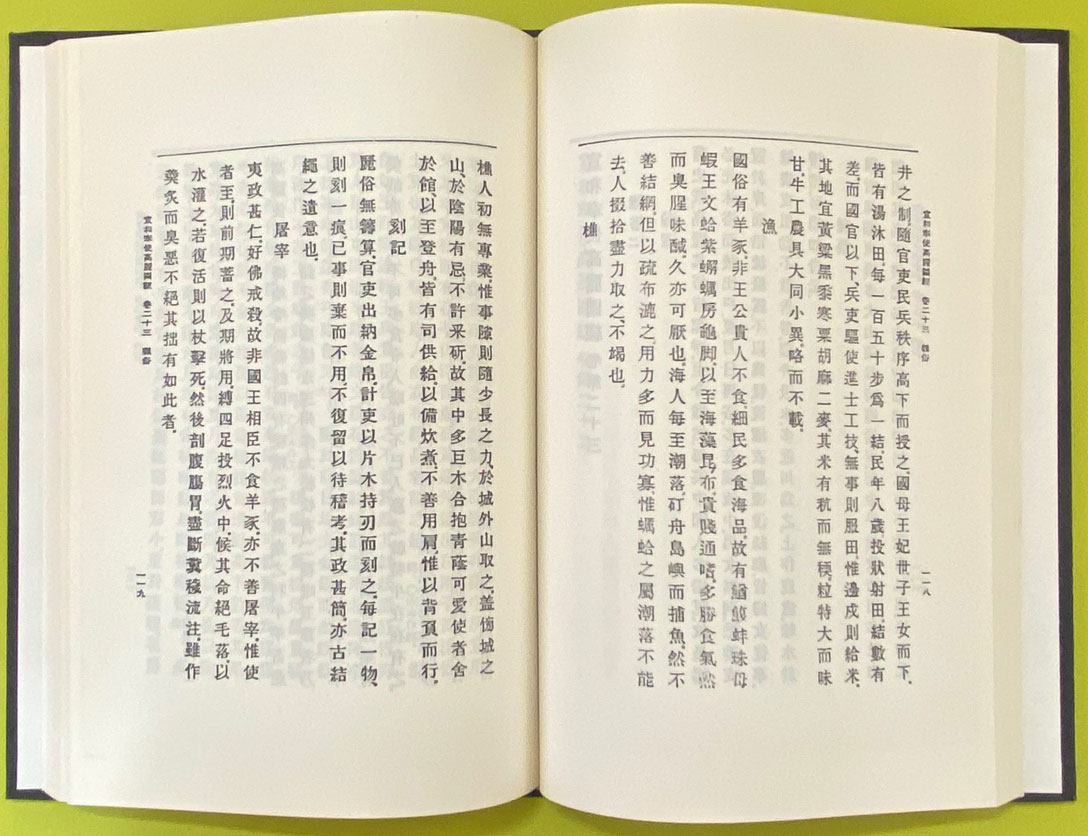 宣和奉使高麗圖經 卷二十三 雜俗
一一八
井之制隨官吏民兵秩序高下而授之國母王妃世子王女而下
皆有湯沐田每一百五十步爲一結民年八歲投狀射田結數有
差而國官以下兵吏驅使進士工技無事則服田惟邊戍則給米
其地宜黃粱黑黍寒粟胡麻二麥其米有秔而無稬粒特大而味
甘牛工農具大同小異略而不載
漁
國俗有羊豕非王公貴人不食細民多食海品故有鰌鰒蚌珠母
蝦王文蛤紫蠏蠣房龜脚以至海藻昆布貴賤通嗜多勝食氣然
而臭腥味鹹久亦可厭也海人每至潮落矴舟島嶼而捕魚然不
善結網但以疏布漉之用力多而見功寡惟蠣蛤之屬潮落不能
去人掇拾盡力取之不竭也
樵
樵人初無專業惟事隙則隨少長之力於城外山取之蓋傍城之
山於陰陽有忌不許采斫故其中多巨木合抱青蔭可愛使者舍
於館以至登舟皆有司供給以備炊煮不善用肩惟以背負而行
刻記
麗俗無籌算官吏出納金帛計吏以片木持刃而刻之每記一物
則刻一痕已事則棄而不用不復留以待稽考其政甚簡亦古結
繩之遺意也
屠宰
夷政甚仁好佛戒殺故非國王相臣不食羊豕亦不善屠宰惟使
者至則前期蓄之及期將用縛四足投烈火中候其命絕毛落以
水灌之若復活則以杖擊死然後剖腹腸胃盡斷糞穢流注雖作
羹胾而臭惡不絕其拙有如此者
宣和奉使高麗圖經 卷二十三 雜俗
一一九